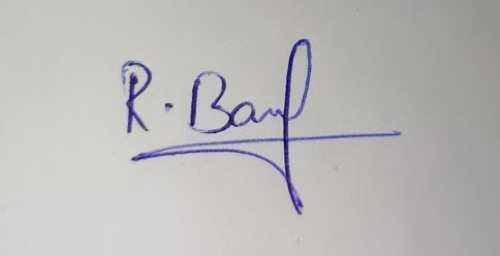 R. Banf